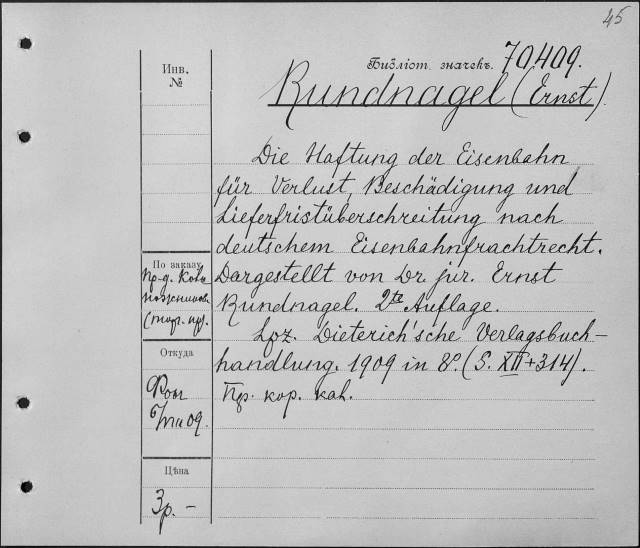 45
Библіот. значекъ. 70409.
Rundnagel (Ernst).
Инв.
№
Die Haftung der Eisenbahn
für Verlust, Beschädigung und
Lieferfristüberschreitung nach
deutschem Eisenbahnfrachtrecht.
Dargestellt von Dr. jur. Ernst
Rundnagel. 2te Auflage.
Lpz. Dieterich'sche Verlagsbuch-
handlung. 1909 in 8º. (S. XII+314).
Пр. кор. кап.
По заказу
Откуда
6/III 09.
Цѣна
3р. -